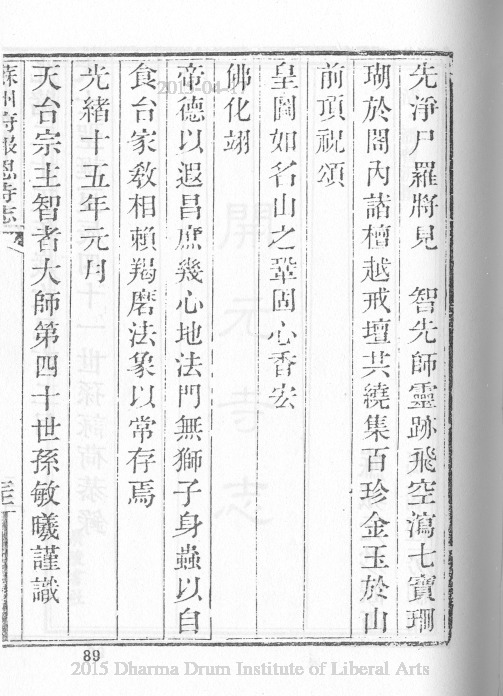 先淨尸羅將見　智先師靈跡飛空瀉七寶珊
瑚於閣內諸檀越戒壇共繞集百珍金玉於山
前頂祝頌
皇圖如名山之鞏固心香宏
佛化翊
帝德以遐昌庶幾心地法門無獅子身蟲以自
食台家教相賴羯磨法象以常存焉
光緒十五年元月
天台宗主智者大師第四十世孫敏曦謹識
蘇州府報恩寺志
89
2015 Dharma Drum Institute of Liberal Arts